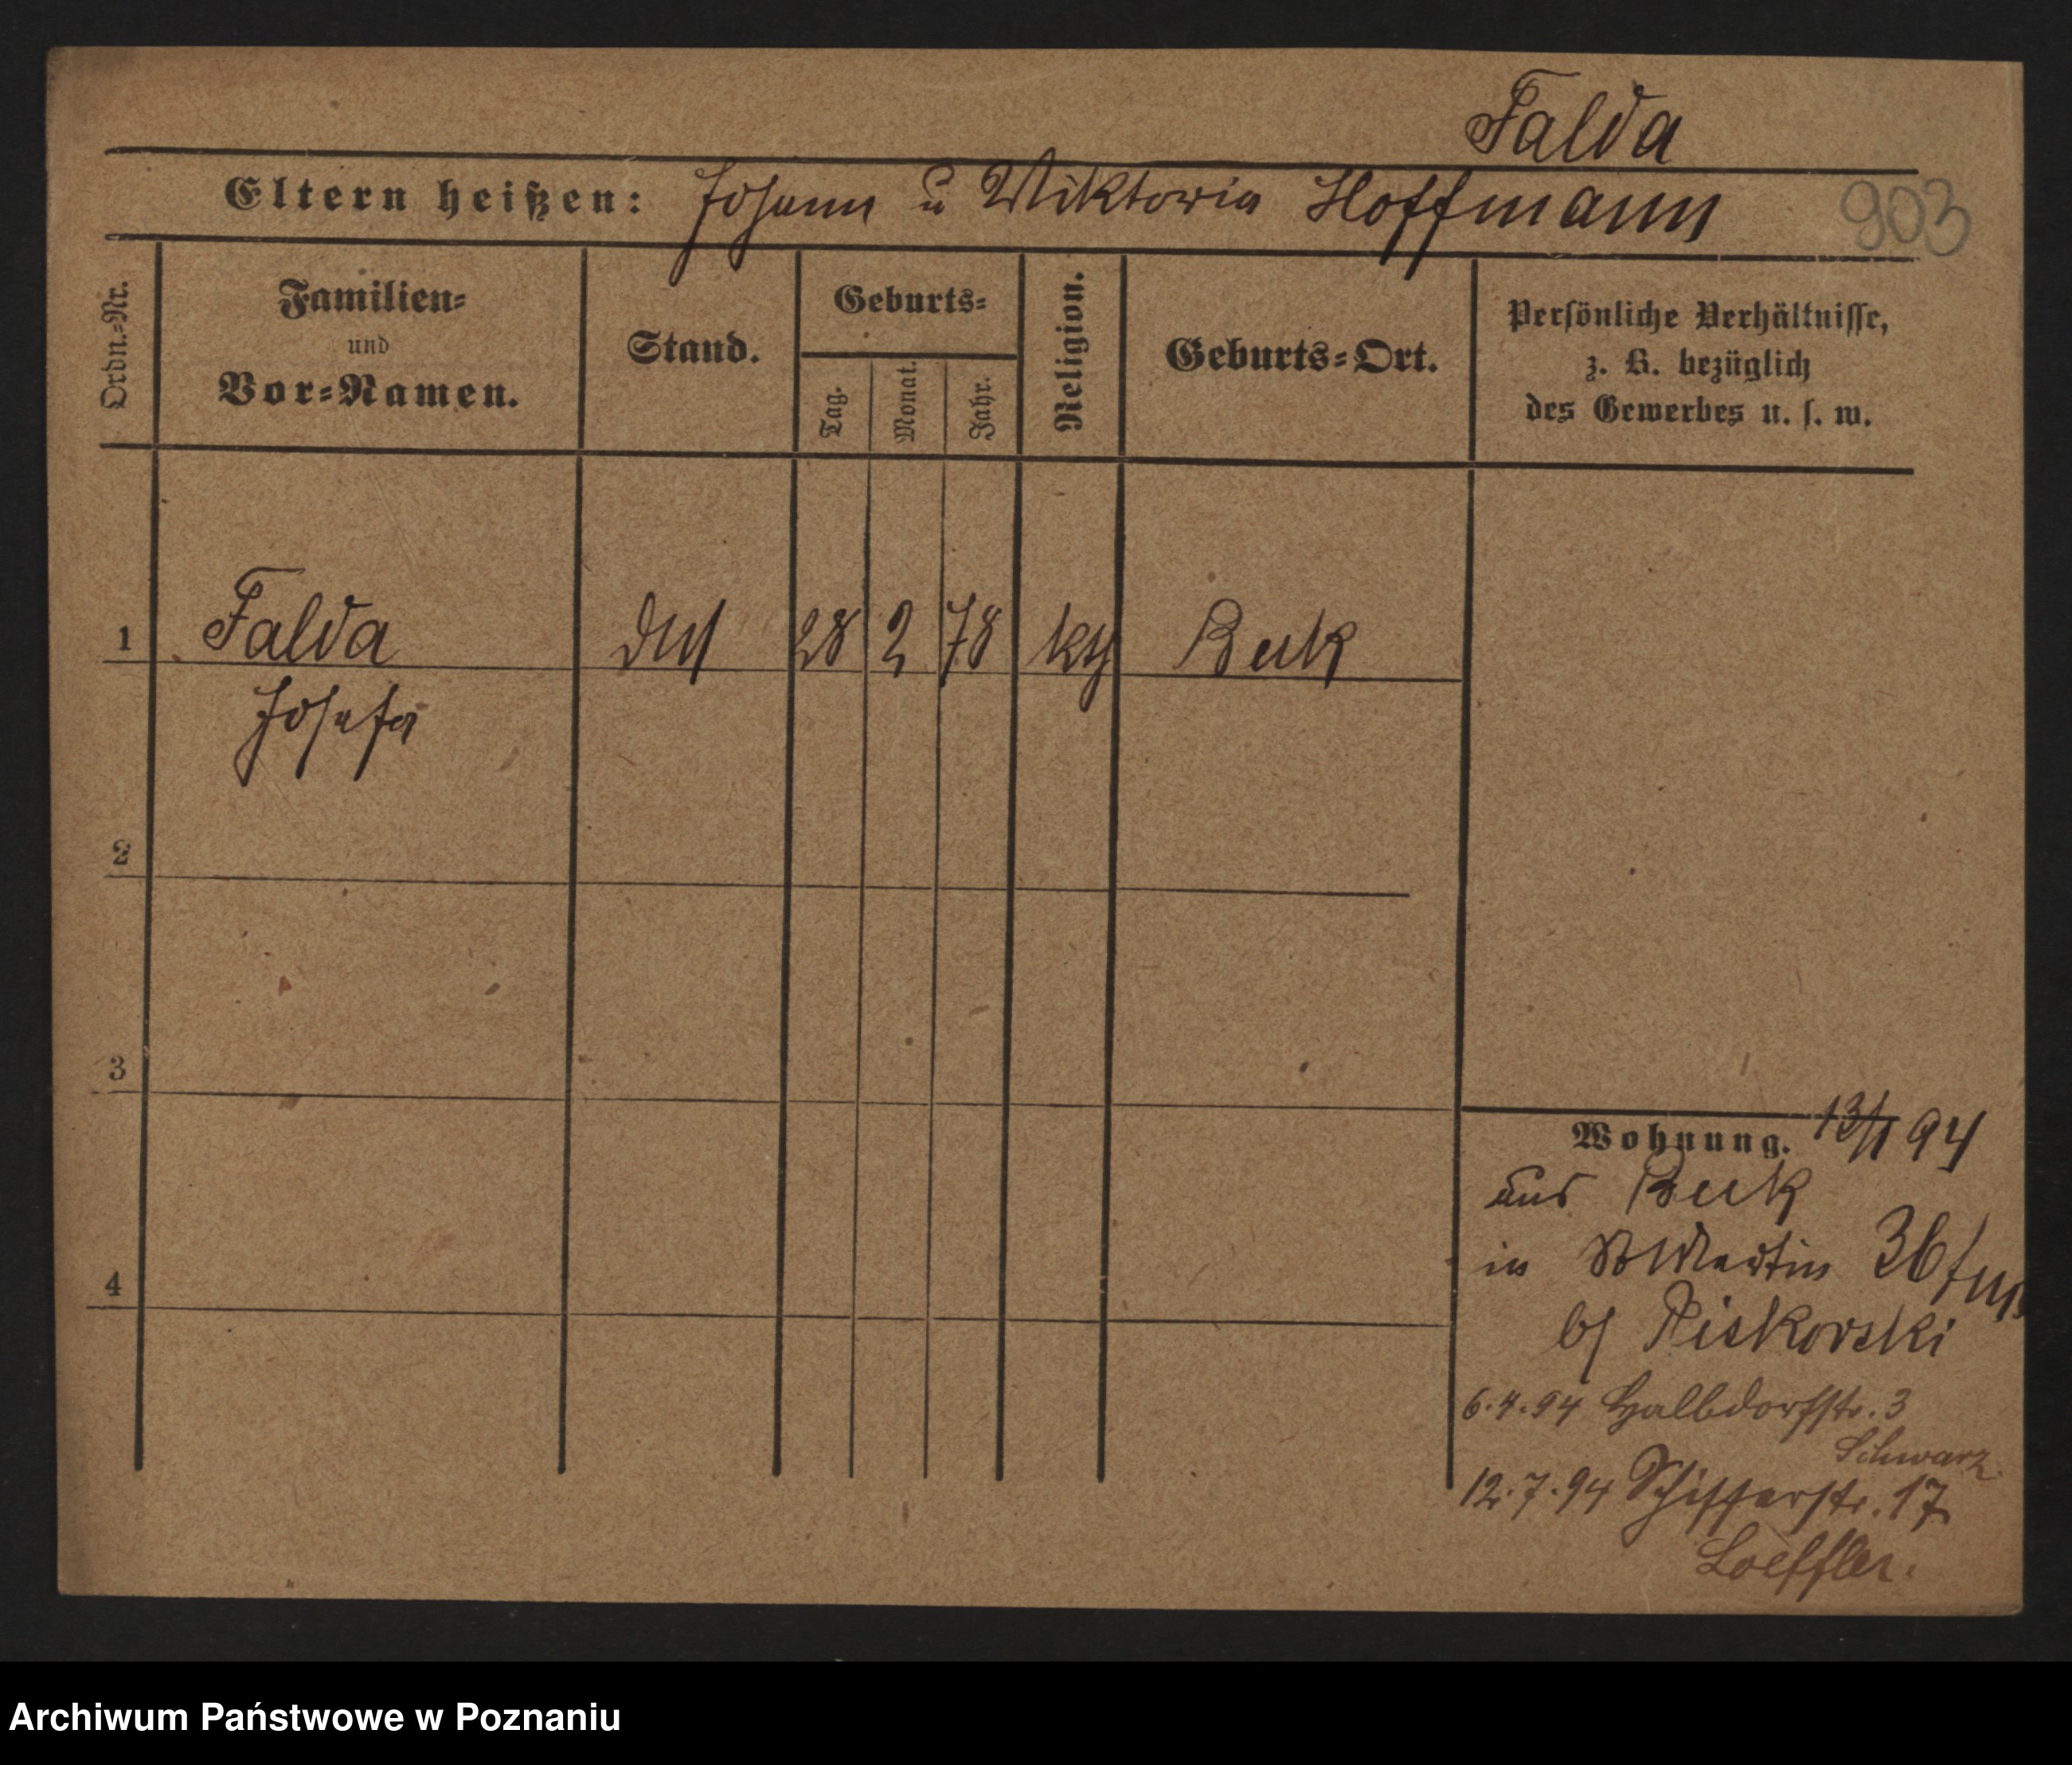 Falda
Eltern heißen: Johann u Wiktoria Hoffmann
903
Ordn.=Nr.
Familien=
und
Vor=Namen.
Stand.
Geburts=
Tag.
Monat.
Jahr.
Religion.
Geburts=Ort.
Persönliche Verhältnisse,
z. B. bezüglich
des Gewerbes u. s. w.
1 Falda 28 2 78 kth Buk
Josefa
2
3
4
Wohnung. 13/1 94
aus Buk
in St Martin 36
bei Piskorski
6.4.94 Halbdorfstr. 3
Schwarz
12.7.94 Schifferstr. 17
Loeffler.
Archiwum Państwowe w Poznaniu